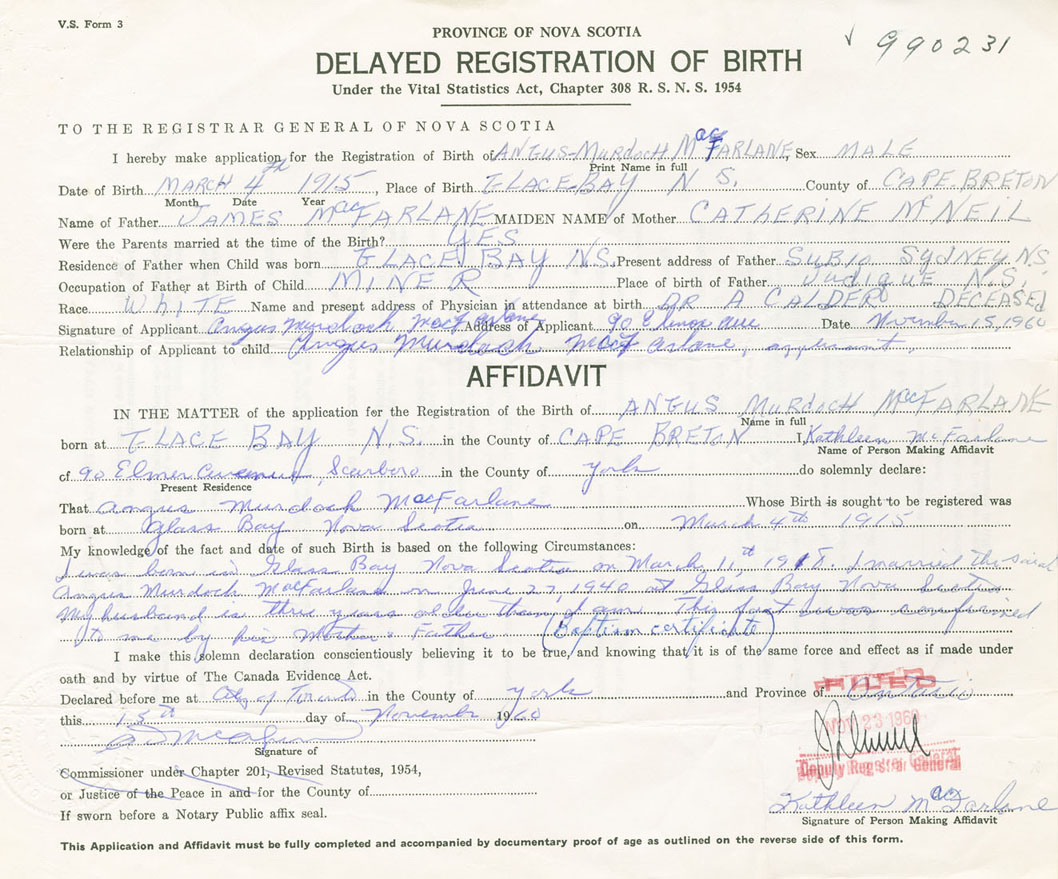 V.S. Form 3
PROVINCE OF NOVA SCOTIA
√ 990231
DELAYED REGISTRATION OF BIRTH
Under the Vital Statistics Act, Chapter 308 R. S. N. S. 1954
TO THE REGISTRAR GENERAL OF NOVA SCOTIA
I hereby make application for the Registration of Birth of ANGUS-MURDOCH MacFARLANE, Sex MALE
Print Name in full
Date of Birth MARCH 4th 1915, Place of Birth GLACE-BAY N S. County of CAPE BRETON
Month Date Year
Name of Father JAMES MacFARLANE MAIDEN NAME of Mother CATHERINE McNEIL
Were the Parents married at the time of the Birth? YES
Residence of Father when Child was born GLACE BAY NS. Present address of Father SUB 10 SYDNEY NS
Occupation of Father at Birth of Child MINER Place of birth of Father JUDIQUE N.S.
Race WHITE Name and present address of Physician in attendance at birth DR A CALDER DECEASED
Signature of Applicant Angus Murdoch MacFarlane Address of Applicant 90 Elinor Ave Date November 15, 1960
Relationship of Applicant to child Angus Murdoch MacFarlane, applicant,
AFFIDAVIT
IN THE MATTER of the application for the Registration of the Birth of ANGUS MURDOCH MacFARLANE
Name in full
born at GLACE BAY N.S. in the County of CAPE BRETON I, Kathleen McFarlane
Name of Person Making Affidavit
of 90 Elmer Avenue, Scarboro in the County of York do solemnly declare:
Present Residence
That Angus Murdock MacFarlane Whose Birth is sought to be registered was
born at Glass Bay Nova Scotia on March 4th 1915
My knowledge of the fact and date of such Birth is based on the following Circumstances:
I was born in Glass Bay Nova Scotia on March 11th 1918. I married the said
Angus Murdock MacFarlane on June 27, 1940 at Glass Bay Nova Scotia
My husband is three years older than I am This fact was confirmed
to me by his Mother & Father (Baptism certificate)
I make this solemn declaration conscientiously believing it to be true, and knowing that it is of the same force and effect as if made under
oath and by virtue of The Canada Evidence Act.
Declared before me at City of Toronto in the County of York and Province of Ontario
FILED
this 15th day of November 1960
NOV 23 1960
Signature of
Deputy Registrar General
Commissioner under Chapter 201, Revised Statutes, 1954,
or Justice of the Peace in and for the County of
Kathleen MacFarlane
If sworn before a Notary Public affix seal.
Signature of Person Making Affidavit
This Application and Affidavit must be fully completed and accompanied by documentary proof of age as outlined on the reverse side of this form.